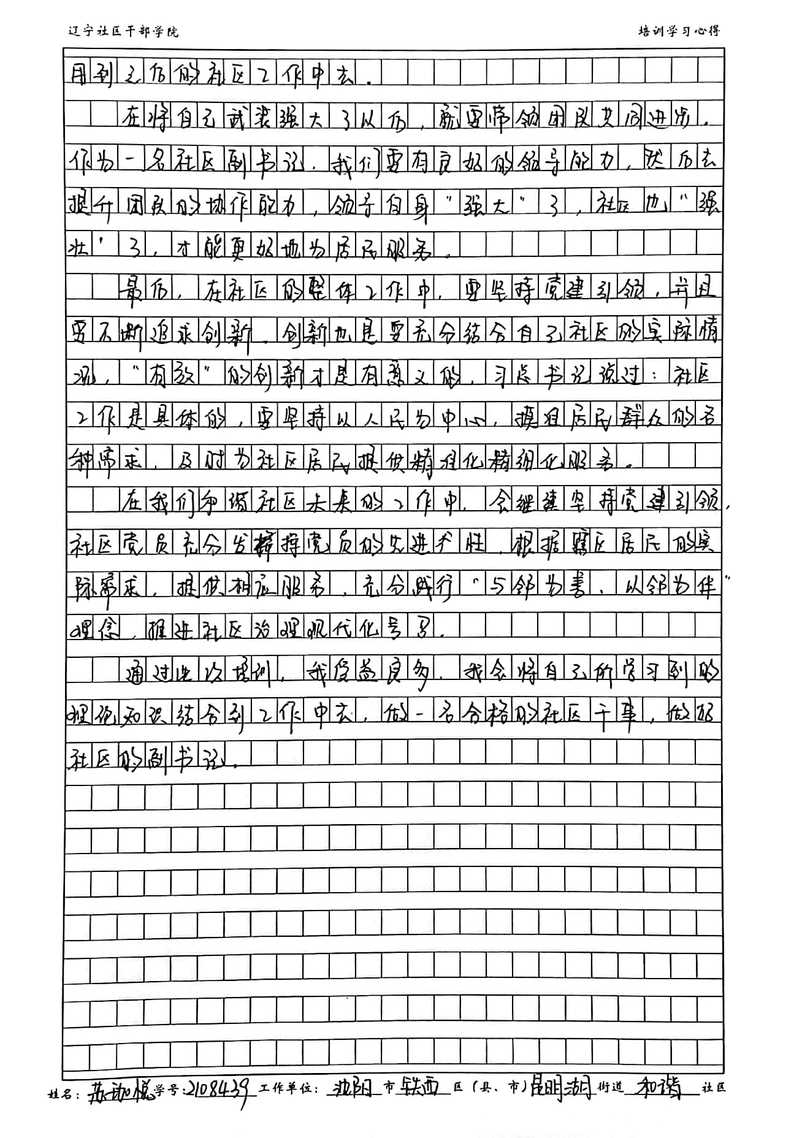 辽宁社区干部学院 培训学习心得
用到之后的社区工作中去。
在将自己武装强大了以后，就要带领团队共同进步。
作为一名社区副书记，我们要有良好的领导能力，然后去
提升团队的协作能力，领导自身“强大”了，社区也“强
壮”了，才能更好地为居民服务。
最后，在社区的整体工作中，要坚持党建引领，并且
要不断追求创新，创新也是要充分结合自己社区的实际情
况，“有效”的创新才是有意义的，习总书记说过：社区
工作是具体的，要坚持以人民为中心，摸准居民群众的各
种需求，及时为社区居民提供精准化精细化服务。
在我们和谐社区未来的工作中，会继续坚持党建引领，
社区党员充分发挥党员的先进性，根据辖区居民的实
际需求，提供相应服务，充分践行“与邻为善，以邻为伴”
理念，推进社区治理现代化
通过此次培训，我受益良多，我会将自己所学习到的
理论知识结合到工作中去，做一名合格的社区干事，做好
社区的副书记。
姓名：苏 悦 学号：2108439 工作单位：沈阳 市 铁西 区（县、市）昆明湖 街道 和谐 社区